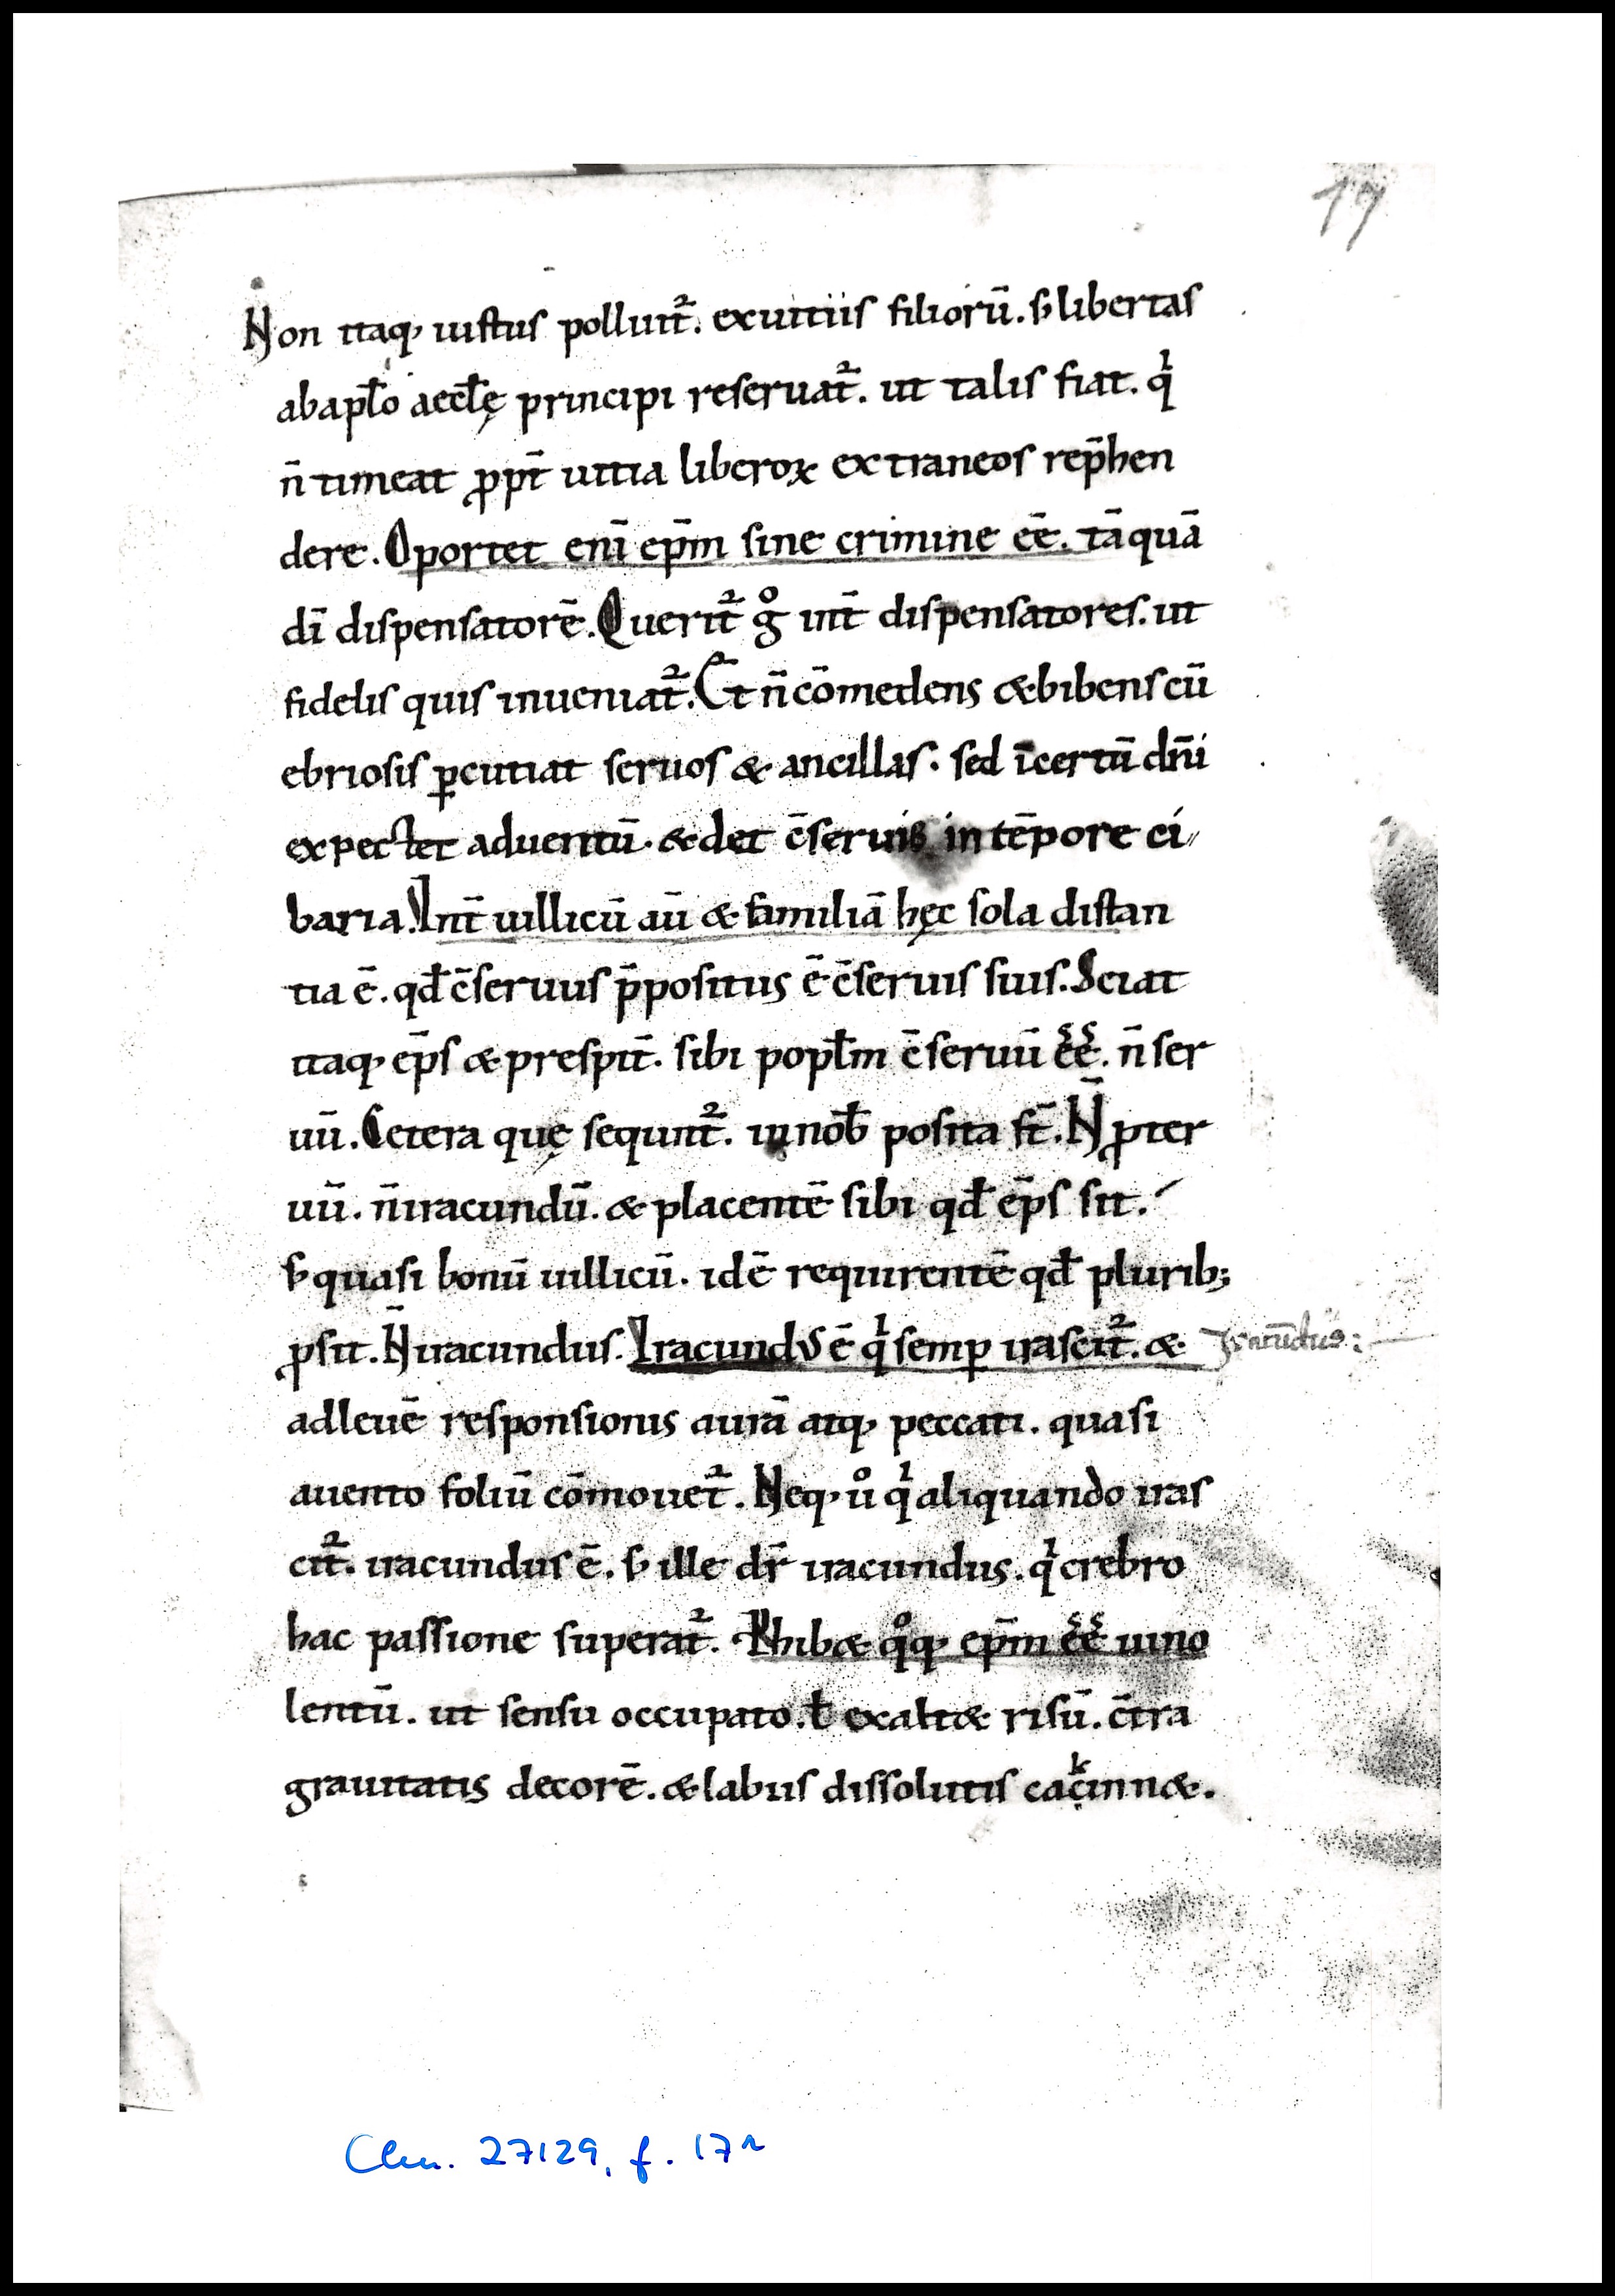 17
Non itaq; iustus polluit᷑. exuitiis filiorū. ſꝫ libertas
abapl̄o aeccl̄ę principi reseruat᷑. ut talis fiat. qͥ
n̄ timeat ꝓpt̄ uitia liberoꝝ extraneos rep̄hen
dere. Oportet eni̅ ep̄m sine crimine ēē. tāquā
dī dispensatorē. Querit᷑ gͦ int̄ dispensatores. ut
fidelis quis inueniat᷑. Et n̄ cōmedens &bibens cū
ebriosis ꝑcutiat seruos & ancillas. sed īcertū dn̄i
expectet aduentū. &det c̄seruis in tēpore ci〃
baria. Int̄ uillicū aū & familiā hęc sola distan
tia ē. qd̄ c̄seruus p̄positus ē c̄seruis suis. Sciat
itaq; ep̄s & prespit̄. sibi popl̄m c̄seruū ēē. n̄ ser
uū. Cetera quę sequnt᷑. in nob̄ posita st̄. N̄ ꝓter
uū. n̄ iracundū. & placentē sibi qd̄ ep̄s sit.
ſꝫ quasi bonū uillicū. idē requirentē qd̄ plurib;
ꝓsit. N̄ iracundus. Iracundus ē qͥ semꝑ irascit᷑. &
Iracūdus:
adleuē responsionis aurā atq; peccati. quasi
auento foliū cōmouet᷑. Neq; uͦ qͥ aliquando iras
cit᷑. iracundus ē. ſꝫ ille dr̄ iracundus. qͥ crebro
hac passione superat᷑. Phib& qͦq; ep̄m ēē uino
lentū. ut sensu occupato. ł exalt& risū. c̄tra
grauitatis decorē. &labiis dissolutis cachinn&.
Clm. 27129, f. 17r